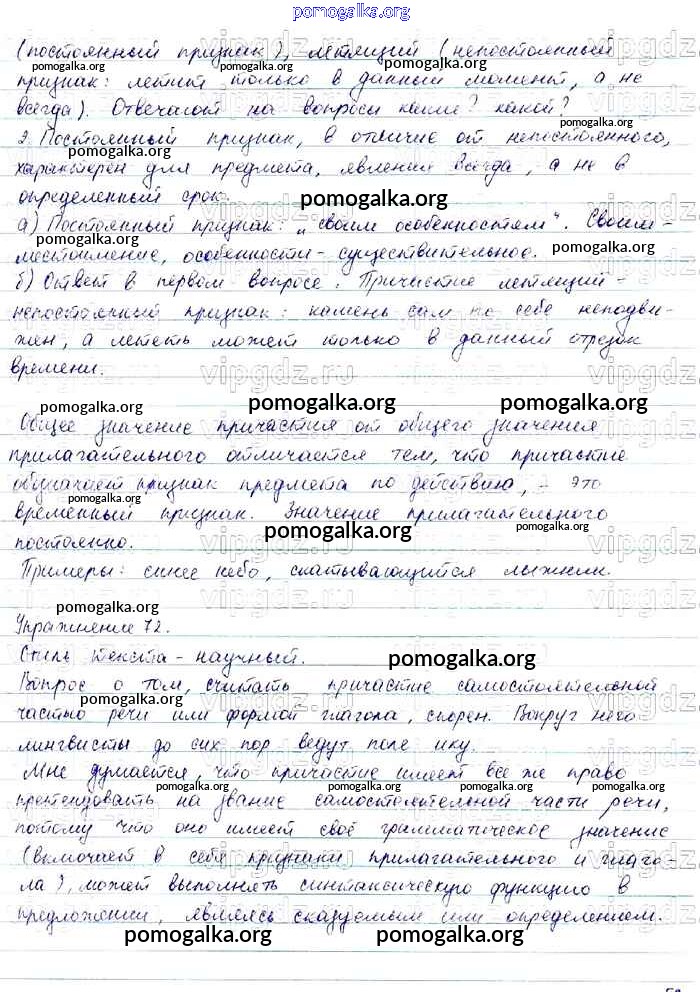 pomogalka.org
(постоянный признак), летящий (непостоянный
признак: летит только в данный момент, а не
всегда). Отвечают на вопросы какие? какой?
2. Постоянный признак, в отличие от непостоянного,
характерен для предмета, явления всегда, а не в
определенный срок.
а) Постоянный признак: „своим особенностям“. Своим –
местоимение, особенности – существительное.
б) Ответ в первом вопросе. Причастие летящий –
непостоянный признак: камень сам по себе неподви-
жен, а лететь может только в данный отрезок
времени.
Общее значение причастия от общего значения
прилагательного отличается тем, что причастие
обозначает признак предмета по действию, – это
временный признак. Значение прилагательного
постоянно.
Примеры: синее небо, скатывающийся лыжник.
Упражнение 72.
Стиль текста – научный.
Вопрос о том, считать причастие самостоятельной
частью речи или формой глагола, спорен. Вокруг него
лингвисты до сих пор ведут полемику.
Мне думается, что причастие имеет все же право
претендовать на звание самостоятельной части речи,
потому что оно имеет своё грамматическое значение
(включает в себя признаки прилагательного и глаго-
ла), может выполнять синтаксическую функцию в
предложении, являясь сказуемым или определением.
pomogalka.org pomogalka.org